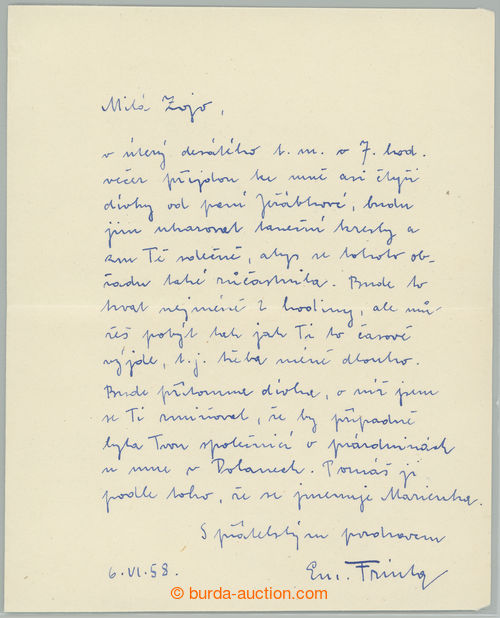 Milá Zojo,
v úterý desátého t. m. v 7. hod.
večer přijdou ke mně asi čtyři
dívky od paní Jeřábkové, budu
jim ukazovat taneční kresby a
zvu Tě srdečně, abys se tohoto ob-
řadu také zúčastnila. Bude to
trvat nejméně 2 hodiny, ale mů-
žeš pobýt tak jak Ti to časově
vyjde, t. j. třeba méně dlouho.
Bude přítomna dívka, o níž jsem
se Ti zmiňoval, že by případně
byla Tvou společnicí o prázdninách
u mne v Dolanech. Poznáš ji
podle toho, že se jmenuje Marienka.
S přátelským pozdravem
6. VI. 58. Em. Frinta
© burda-auction.com